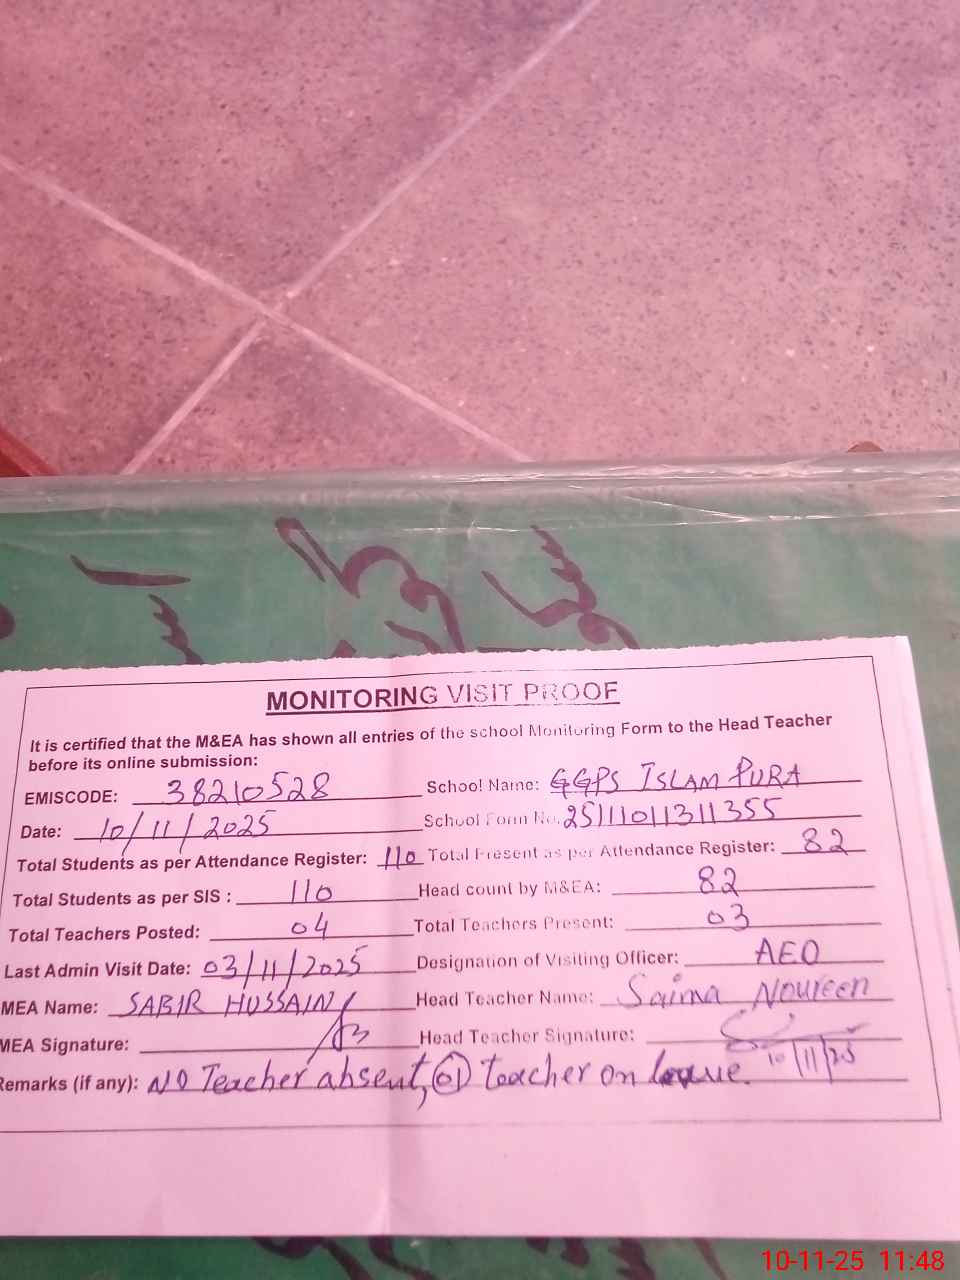 MONITORING VISIT PROOF
It is certified that the M&EA has shown all entries of the school Monitoring Form to the Head Teacher
before its online submission:
EMISCODE: 38210528 School Name: GGPS ISLAM PURA
Date: 10/11/2025 School Form No. 25111011311355
Total Students as per Attendance Register: 110 Total Present as per Attendance Register: 82
Total Students as per SIS : 110 Head count by M&EA: 82
Total Teachers Posted: 04 Total Teachers Present: 03
Last Admin Visit Date: 03/11/2025 Designation of Visiting Officer: AEO
MEA Name: SABIR HUSSAIN Head Teacher Name: Saima Noureen
MEA Signature: Head Teacher Signature: 10/11/25
Remarks (if any): NO Teacher absent, 01 teacher on leave.
10-11-25 11:48